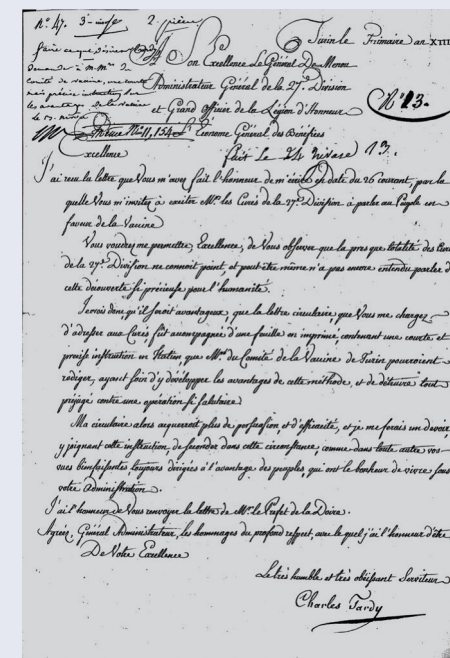 N.° 47. 3.e
2. pièce
Turin le Frimaire an XIII
faire ce que désire
demande à M.rs du
comité de vaccine, une courte
et précise instruction sur
les avantages de la vaccine
le 13. nivose
A Son Excellence Le Général De Menou
Administrateur Général de la 27.e Division
et Grand Officier de la Légion d'Honneur
N.° 13.
N.° 11,154 L'Econome Général des Bénéfices
fait le 14 nivose 13.
Excellence
J'ai reçu la lettre que Vous m'avez fait l'honneur de m'écrire en date du 26 courant, par la
quelle Vous m'invitez à exciter M.rs les Curés de la 27.e Division à parler au Peuple en
faveur de la Vaccine
Vous voudrez me permettre, Excellence, de Vous observer que la presque totalité des Curés
de la 27.e Division ne connoit point, et peut être même n'a pas encore entendu parler de
cette découverte si précieuse pour l'humanité.
Je crois donc qu'il seroit avantageux, que la lettre circulaire, que Vous me chargez
d'adresser aux Curés fût accompagnée d'une feuille en imprimé contenant une courte et
precise instruction en Italien que M.rs du Comité de la Vaccine de Turin pourroient
rédiger, ayant soin d'y développer les avantages de cette méthode, et de détruire tout
préjugé contre une opération si salutaire
Ma circulaire alors acquerroit plus de persuasion, et d'efficacité, et je me ferois un devoir,
y joignant cette instruction, de seconder dans cette circonstance, comme dans toute autre vos
vues bienfaisantes toujours dirigées à l'avantage des peuples, qui ont le bonheur de vivre sous
votre Administration.
J'ai l'honneur de Vous renvoyer la lettre de M.r le Prefet de la Doire.
Agréez, Général Administrateur, les hommages du profond respect, avec le quel j'ai l'honneur d'être
De Votre Excellence
Le très humble et très obéissant Serviteur
Charles Tardy